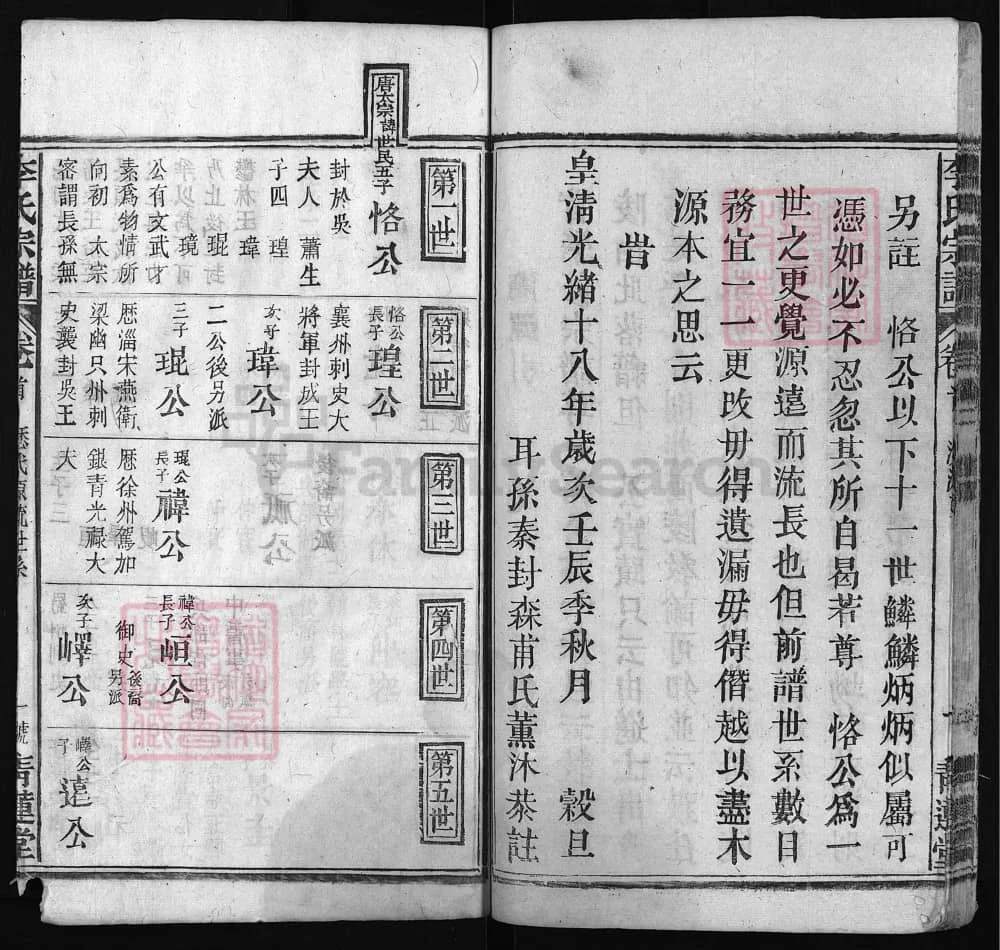 另註 恪公以下十一世鱗鱗炳炳似屬可
憑如必不忍忽其所自曷若尊 恪公為一
世之更覺源遠而流長也但前譜世系數目
務宜一一更改毋得遺漏毋得僭越以盡木
源本之思云
旹
皇清光緒十八年歲次壬辰季秋月 穀旦
耳孫秦封森甫氏薰沐恭註
唐太宗諱世民五子
第一世
恪公
封於吳
夫人 蕭生
子四 瑝
瑋
琨
璄
公有文武才
素為物情所
向初 太宗
密謂長孫無
第二世
恪公長子 瑝公
襄州刺史大
將軍封成王
次子 瑋公
二公後另派
三子 琨公
歷淄宋燕衛
梁幽只州刺
史襲封吳王
第三世
琨公長子 禕公
歷徐州駕加
銀青光祿大
夫
第四世
禕公長子 峘公
御史後裔另派
次子 嶧公
第五世
嶧公子 遠公
李氏宗譜 卷首 歷代源流世系 一號 青蓮堂
FamilySearch